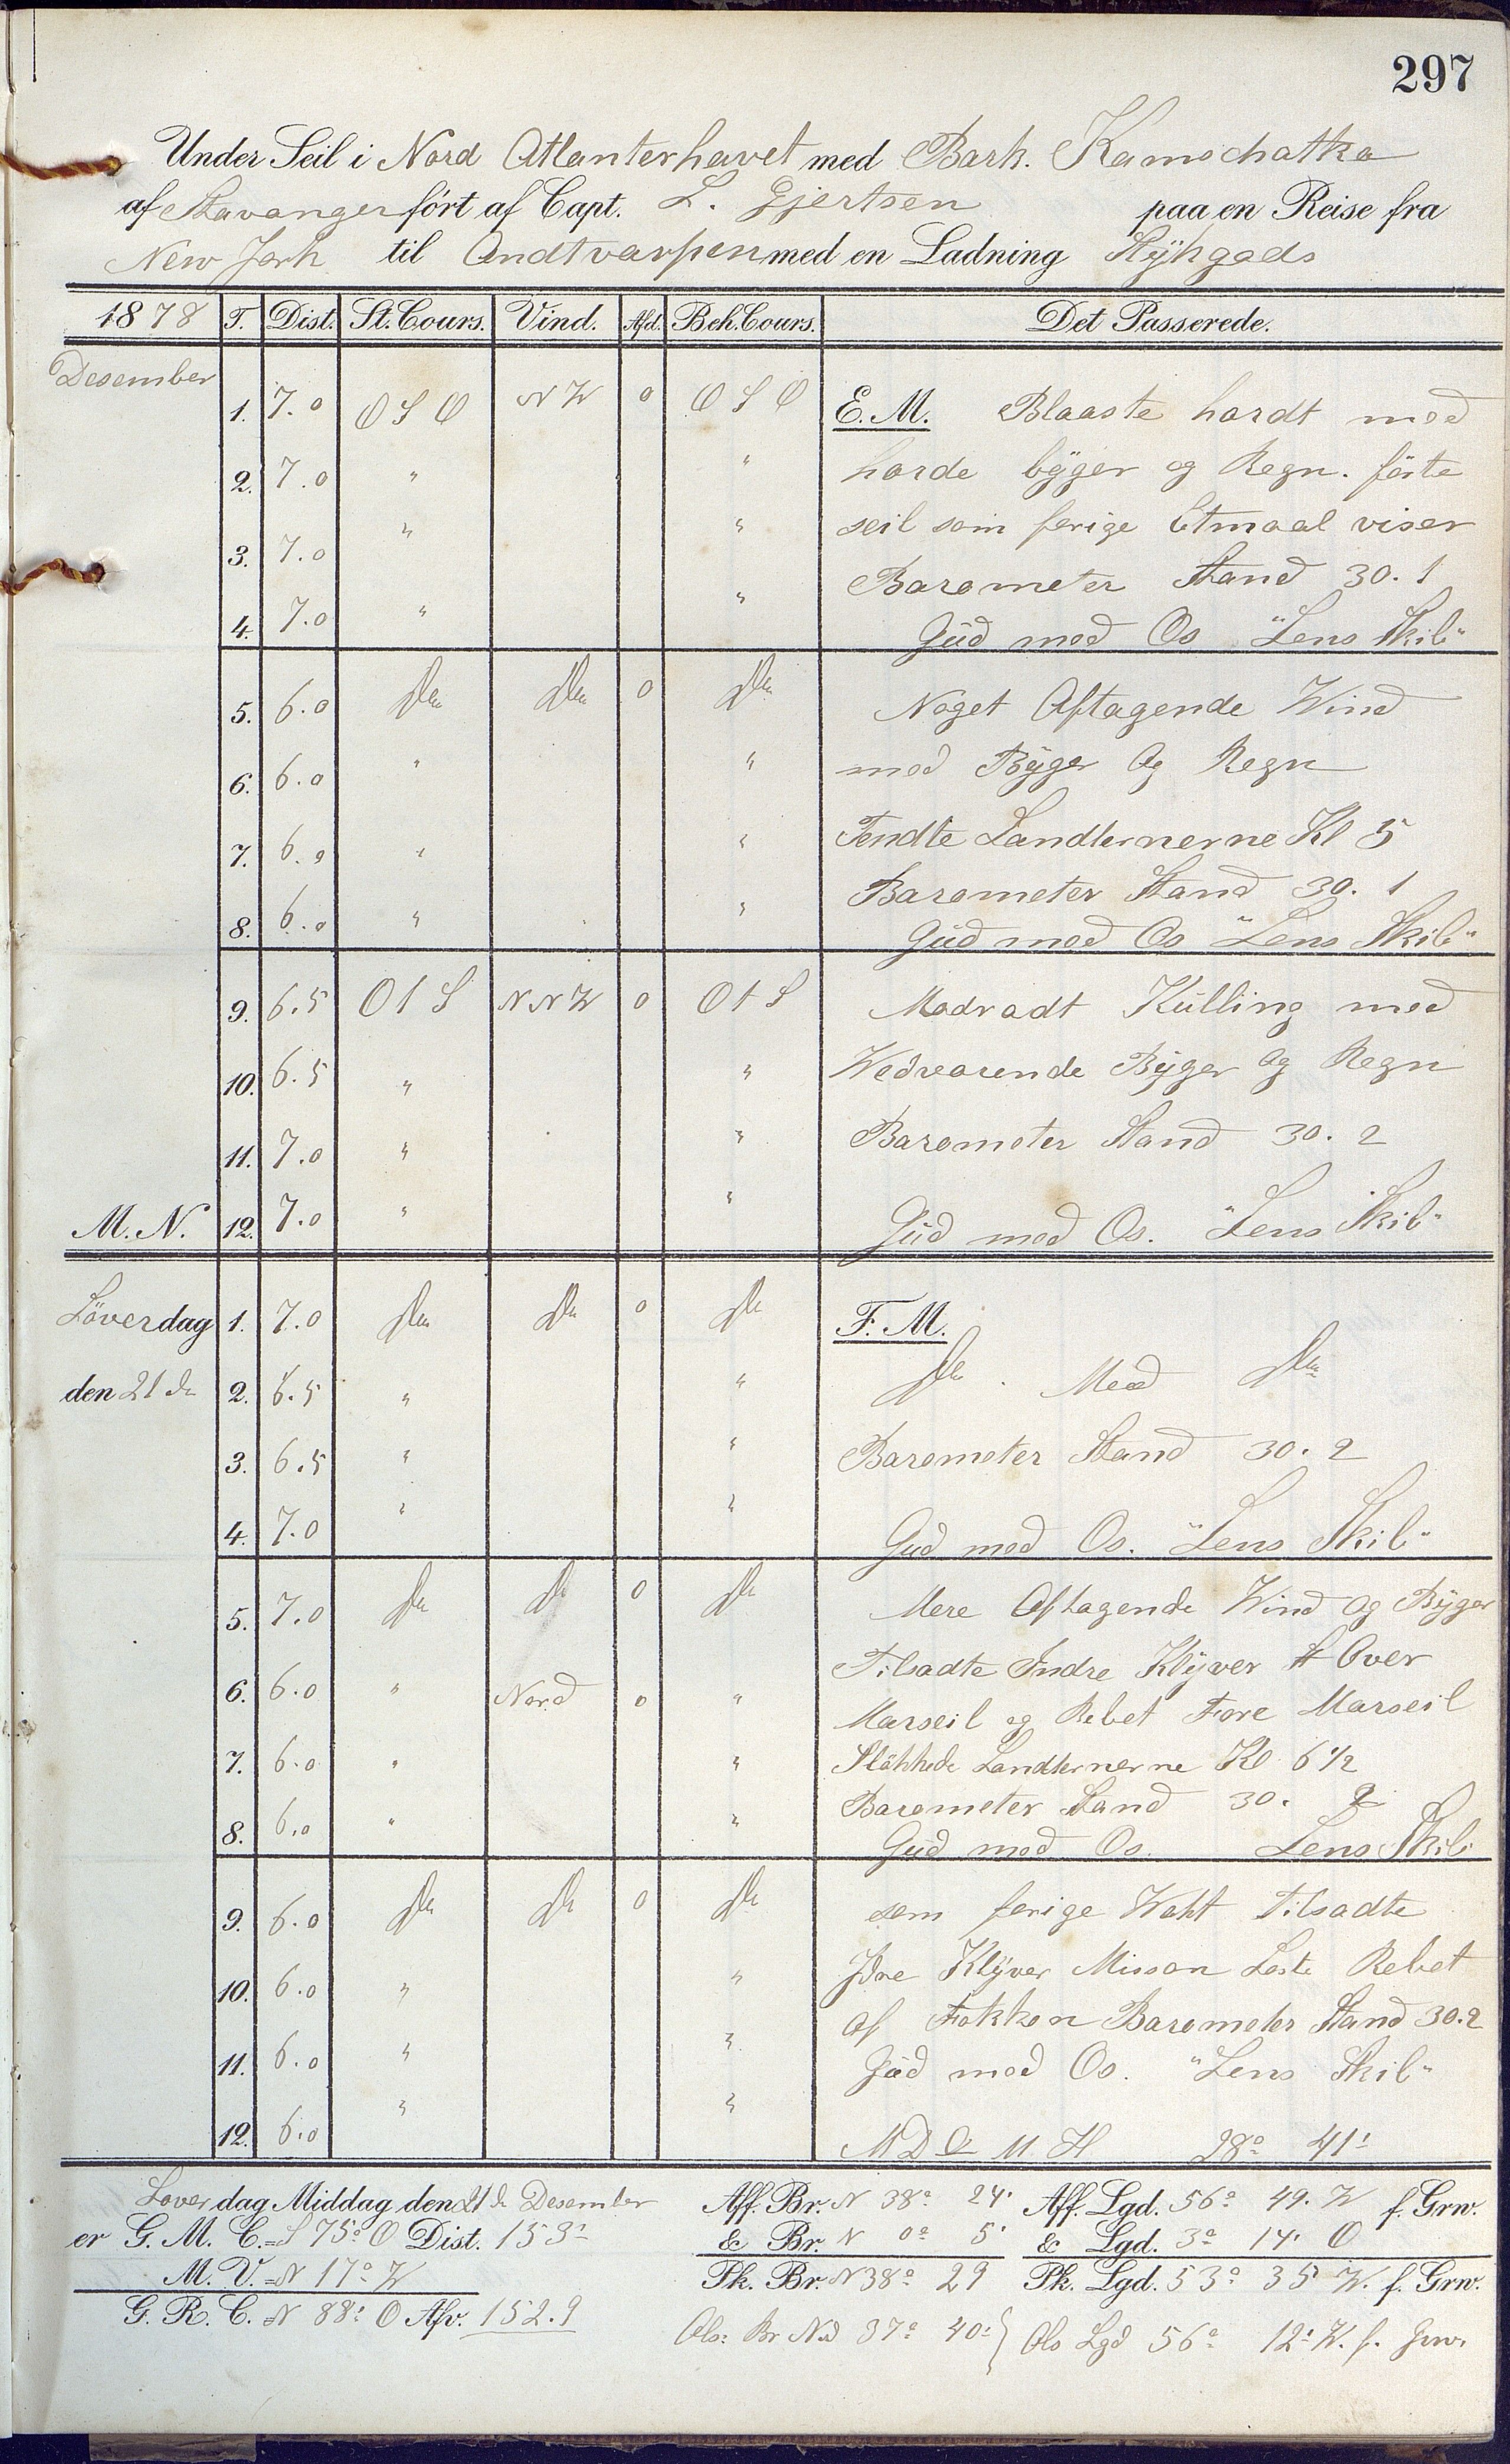 297
Under Seil i Nord Atlanterhavet med Bark. Kamschatka
af Stavanger ført af Capt. L. Gjertsen paa en Reise fra
New Jork til Andtvarpen med en Ladning Stÿkgods
1878 T. Dist. St. Cours. Vind. Afd. Beh. Cours. Det Passerede.
Desember
1. 7.0 O S O N W 0 O S O E. M. Blaaste hardt med
2. 7.0 " " harde bÿger og Regn. förte
3. 7.0 " " seil som forige Etmaal viser
Barometer Stand 30.1
4. 7.0 " " Gúd med Os "Lens Skib"
5. 6.0 do do 0 do Noget Aftagende Wind
6. 6.0 " " med Bÿger Og Regn
7. 6.0 " " Tendte Landternerne Kl 5
Barometer Stand 30.1
8. 6.0 " " Gúd med Os "Lens Skib"
9. 6.5 O t S N N W 0 O t S Modradt Kúlling med
10. 6.5 " " Wedvarende Bÿger Og Regn
11. 7.0 " " Barometer Stand 30.2
M. N. 12. 7.0 " " Gúd med Os. "Lens Skib"
Löverdag 1. 7.0 do do 0 do F. M.
den 21 de 2. 6.5 " " do Med do
3. 6.5 " " Barometer Stand 30.2
4. 7.0 " " Gúd med Os. "Lens Skib"
5. 7.0 do do 0 do Mere Aftagende Wind og Bÿger
Tilsadte Indre Klÿver St Over
6. 6.0 " Nord 0 " Marseil og Rebet Fore Marseil
7. 6.0 " " Slökkede Landternerne Kl 6 1/2
Barometer Stand 30. 2
8. 6.0 " " Gúd med Os. Lens Skib
9. 6.0 do do 0 do som forige Wakt Tilsadte
10. 6.0 " " Jdre Klÿver Missan Loste Rebet
af Fokken Barometer Stand 30.2
11. 6.0 " " Gúd med Os. "Lens Skib"
12. 6.0 " " M D O U. H 28° 41'
Lover dag Middag den 21 de Desember Aff. Br. N 38° 24' Aff. Lgd. 56° 49. W f. Grw.
er G. M. C. = S 75° O Dist. 153' & Br. N 0° 5' & Lgd. 3° 14' O
M. V. = N 17° W Pk. Br. N 38° 29 Pk. Lgd. 53° 35 W. f. Grw.
G. R. C. = N 88° O Afv. 152.9
Obs: Br Nd 37° 40' } Obs Lgd 56° 12' W. f. Grw.